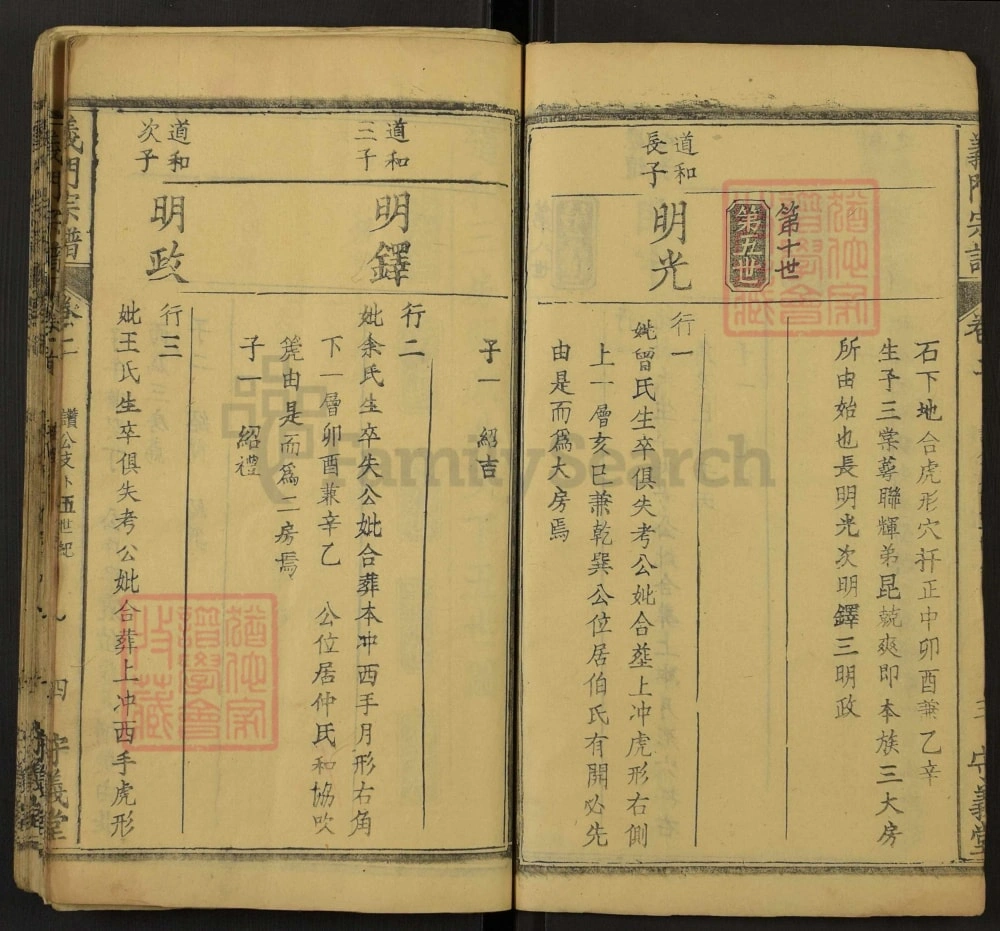 義門宗譜
卷二
三
守義堂
石下地合虎形穴扦正中卯酉兼乙辛
生子三棠萼聯輝弟昆兢爽即本族三大房
所由始也長明光次明鐸三明政
第十世
第五世
道和
長子
明光
行一
妣曾氏生卒俱失考公妣合塟上冲虎形右側
上一層亥巳兼乾巽公位居伯氏有開必先
由是而爲大房焉
子一 紹吉
道和
三子
明鐸
行二
妣余氏生卒失公妣合葬本冲西手月形右角
下一層卯酉兼辛乙 公位居仲氏和協吹
箎由是而爲二房焉
子一 紹禮
道和
次子
明政
行三
妣王氏生卒俱失考公妣合葬上冲西手虎形
義門宗譜
卷二
讚公支
五世紀
四
守義堂
譜學會
收藏
FamilySearch